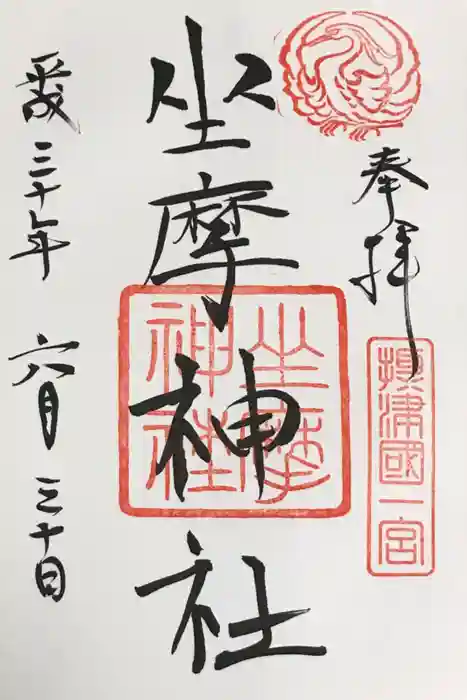 奉拝
摂津國一宮
坐摩神社
坐摩
神社
平成三十年 六月三十日